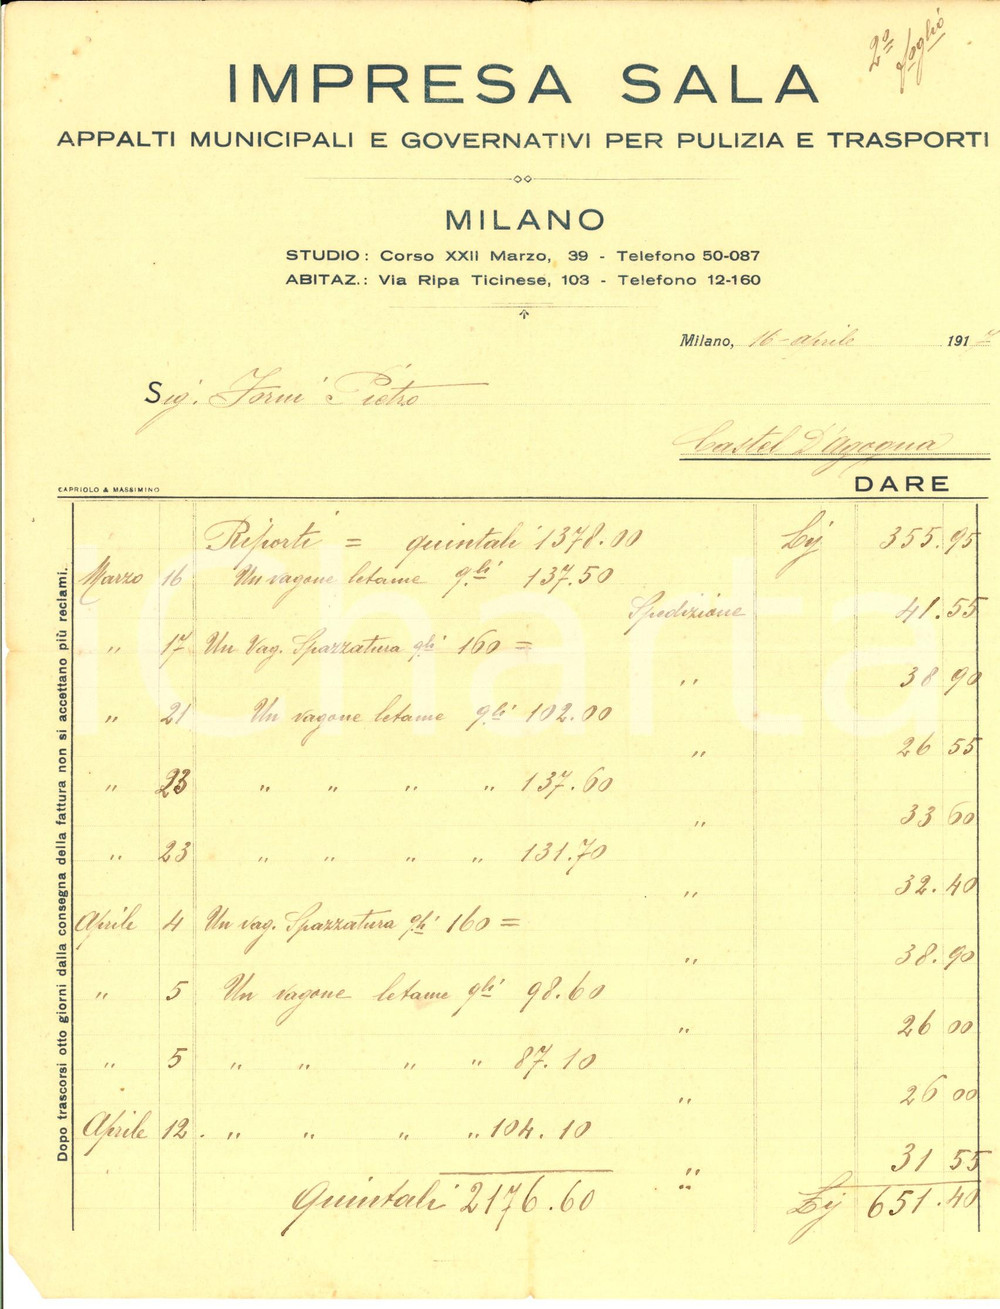 2º foglio
IMPRESA SALA
APPALTI MUNICIPALI E GOVERNATIVI PER PULIZIA E TRASPORTI
MILANO
STUDIO: Corso XXII Marzo, 39 - Telefono 50-087
ABITAZ.: Via Ripa Ticinese, 103 - Telefono 12-160
Milano, 16 - aprile 191
Sig. Pietro
Castel D'Agogna
CAPRIOLO & MASSIMINO
DARE
Riporti = quintali 1378.00 355.95
Marzo 16 Un vagone letame q.li 137.50
Spedizione 41.55
" 17 Un Vag. Spazzatura q.li 160 =
" 38 90
" 21 Un vagone letame q.li 102.00
" 26 55
" 23 " " " " 137.60
" 33 60
" 23 " " " " 131.70
" 32.40
Aprile 4 Un vag. Spazzatura q.li 160 =
" 38.90
" 5 Un vagone letame q.li 98.60
" 26 00
" 5 " " " " 87.10
" 26 00
Aprile 12. " " " " 104.10
" 31 55
Quintali 2176.60 " 651.40
Dopo trascorsi otto giorni dalla consegna della fattura non si accettano più reclami.
iCharta